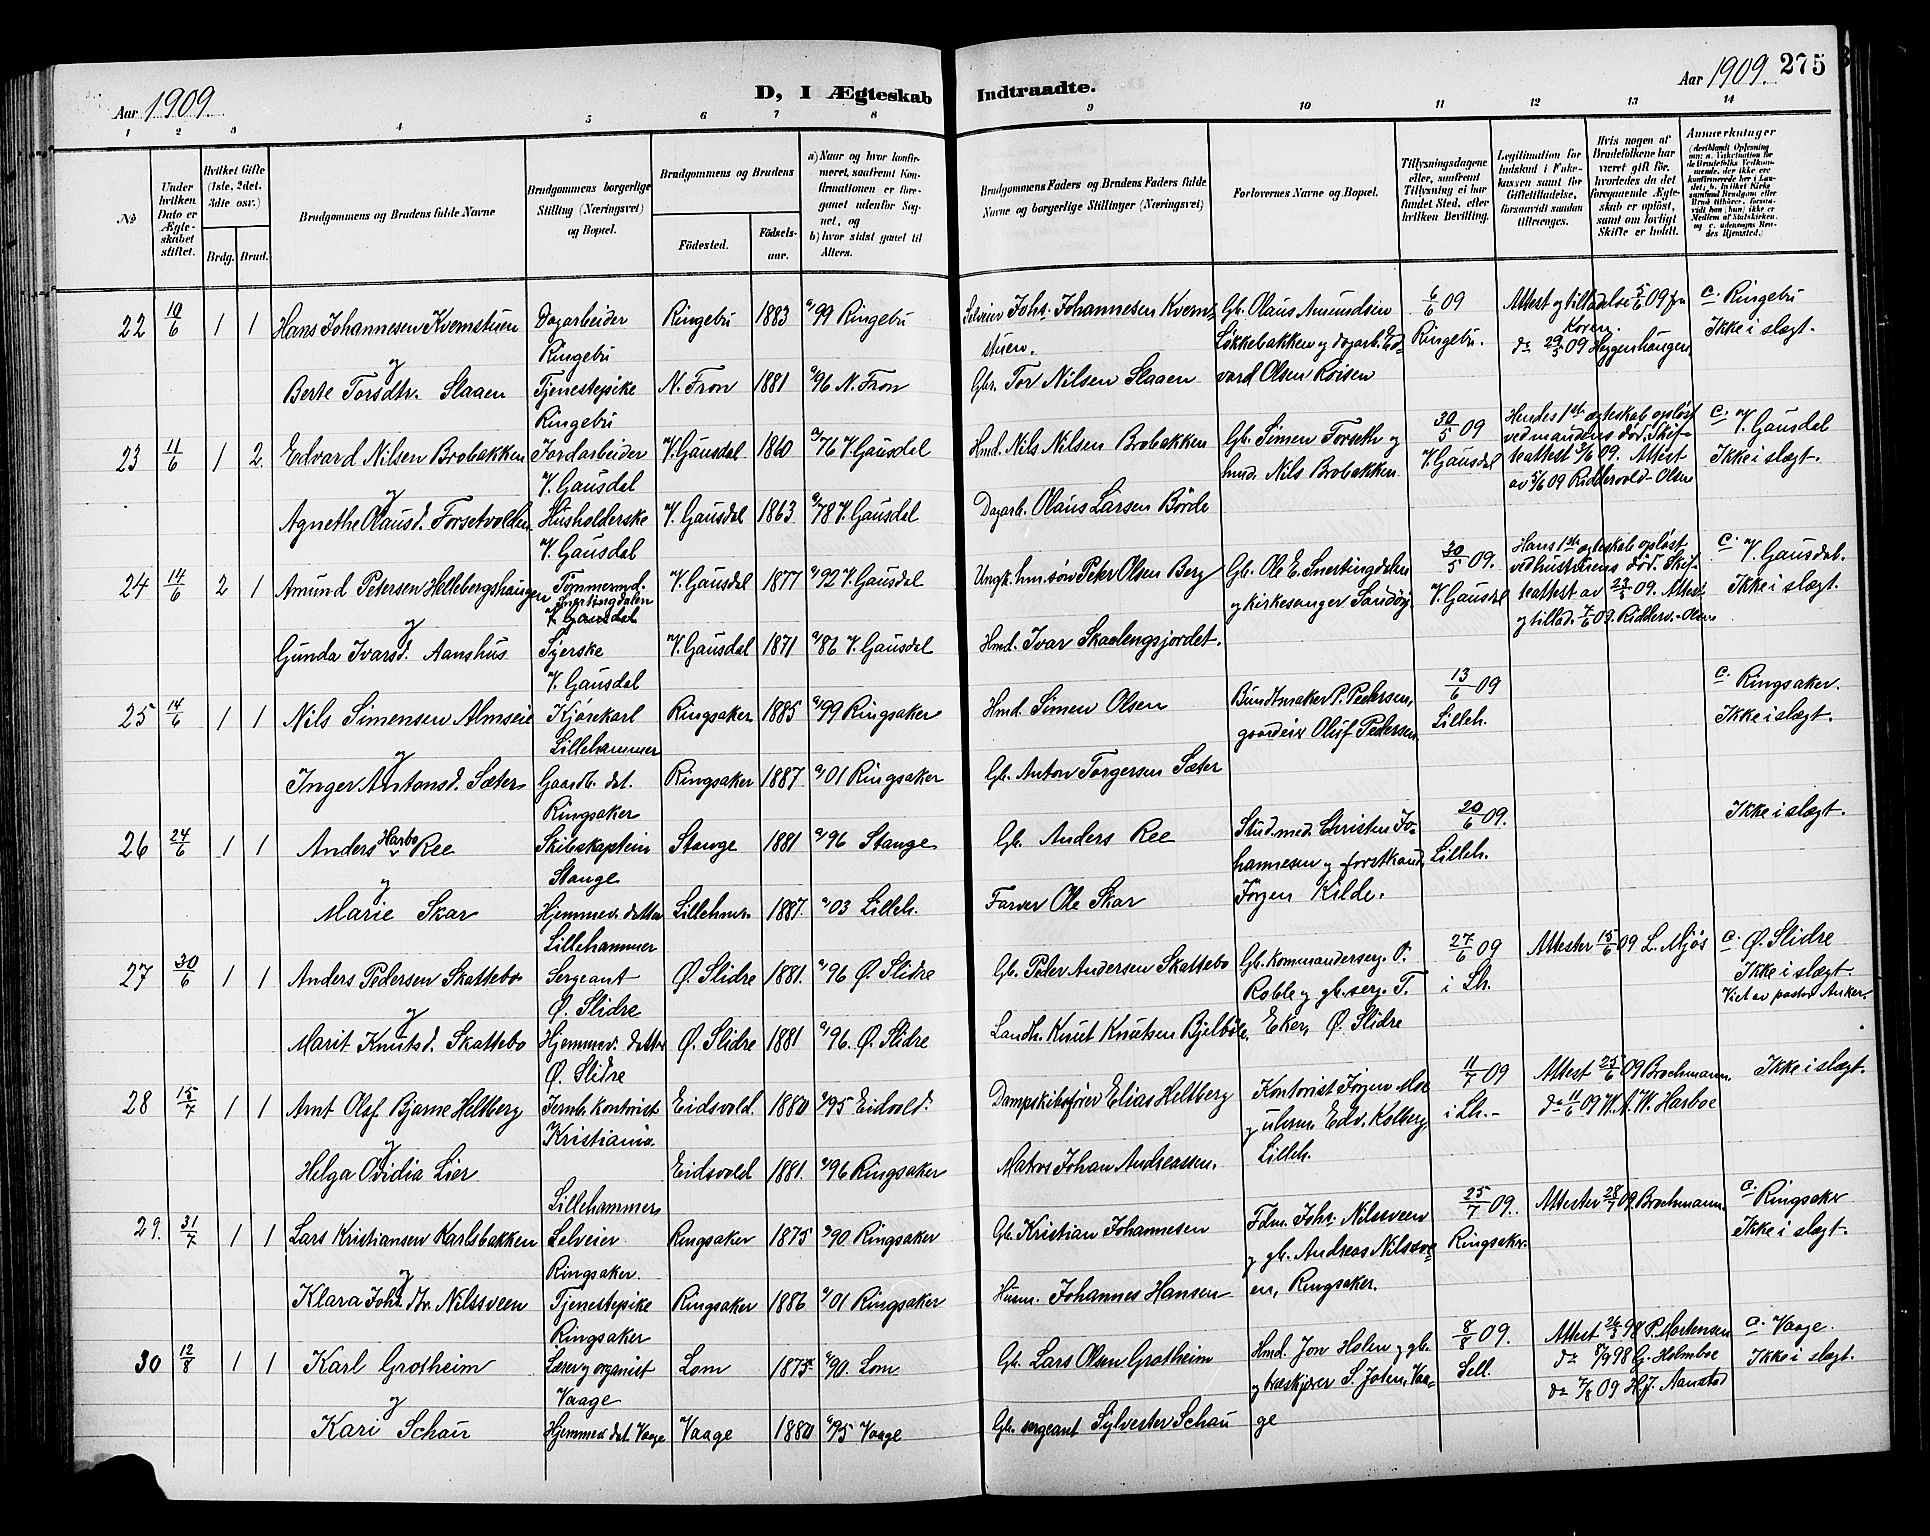 Aar 1909.
D, I Ægteskab Indtraadte.
Aar 1909. 275
1 2 3 4 5 6 7 8 9 10 11 12 13 14
No
Under hvilken Dato er Ægteskabet stiftet.
Hvilket Gifte (1ste, 2det, 3die osv.)
Brdg. Brud.
Brudgommens og Brudens fulde Navne
Brudgommens borgerlige Stilling (Næringsvei) og Bopæl.
Brudgommens og Brudens
Födested. Födselsaar.
a) Naar og hvor konfirmeret, saafremt Konfirmationen er foregaaet udenfor Sognet, og
b) hvor sidst gaaet til Alters.
Brudgommens Faders og Brudens Faders fulde Navne og borgerlige Stillinger (Næringsvei)
Forlovernes Navne og Bopæl.
Tillysningsdagene eller, saafremt Tillysning ei har fundet Sted, efter hvilken Bevilling.
Legitimation for Indskud i Enkekassen samt for Giftetilladelse, forsaavidt saadan tiltrænges.
Hvis nogen af Brudefolkene har været gift för, hvorledes da det foregaaende Ægteskab er oplöst, samt om lovligt Skifte er holdt.
Anmærkninger
22 10/6 1 1 Hans Johannesen Kvemstuen Dagarbeider Ringebu Ringebu 1883 99 Ringebu Selveier Johs. Johannesen Kvemstuen. Gb. Olaus Amundsen Løkkebakken og dagarb. Edvard Olsen Roisen 6/6 09 Ringebu. Attest og tilladelse 5/6 09 fra Koren. do 29/5 09 Heggenhaugen c. Ringebu Ikke i slægt.
og
Berte Torsdtr. Slaaen Tjenestepike Ringebu N. Fron 1881 96 N. Fron Gbr. Tor Nilsen Slaaen
23 11/6 1 2. Edvard Nilsen Brobakken Jordarbeider V. Gausdal V. Gausdal 1860 76 V. Gausdal Hmd. Nils Nilsen Brobakken Gb. Simen Forseth og hmd. Nils Brobakken 30/5 09 V. Gausdal Hendes 1ste ægteskab opløst ved mandens død. Skifteattest 3/6 09. Attest av 5/6 09 Riddervold-Olsen c. V. Gausdal Ikke i slægt.
og
Agnethe Olausd. Forsetvolden Husholderske V. Gausdal V. Gausdal 1863 78 V. Gausdal Dagarb. Olaus Larsen Börde
24 14/6 2 1 Amund Petersen Hellebergshaugen Tömmermd. Snertingdalen V. Gausdal V. Gausdal 1877 92 V. Gausdal Ungk. hm. søn Peter Olsen Berg Gb. Ole E. Snertingdalen og kirkesanger Sandöy 30/5 09. V. Gausdal Hans 1ste ægteskab opløst ved hustruens død. Skifteattest av 23/5 09. Attest og tillad. 7/6 09. Ridderv.-Olsen c. V. Gausdal. Ikke i slægt.
og
Gunda Ivarsd. Aanshus Syerske V. Gausdal V. Gausdal 1871 86 V. Gausdal Hmd. Ivar Skaalengsjordet.
25 14/6 1 1 Nils Simensen Almseie Kjørekarl Lillehammer Ringsaker 1885 99 Ringsaker Hmd. Simen Olsen Bundtmaker P. Pedersen, gaardeier Oluf Pedersen 13/6 09 Lilleh. c. Ringsaker. Ikke i slægt.
og
Inger Antonsd. Sæter Gaardb. dat. Ringsaker Ringsaker 1887 01 Ringsaker Gb. Anton Torgersen Sæter
26 24/6 1 1 Anders Harbo Ree Skibskaptein Stange Stange 1881 96 Stange Gb. Anders Ree Stud. med. Christen Johannesen og forstkand. Jørgen Kilde. 20/6 09. Lilleh. Ikke i slægt.
og
Marie Skar Hjemmev. datter Lillehammer Lillehmr. 1887. 03 Lilleh. Farver Ole Skar
27 30/6 1 1 Anders Pedersen Skattebo Sergeant Ø. Slidre Ø. Slidre 1881. 96 Ø. Slidre Gb. Peder Andersen Skattebo Gb. kommandersergt. P. Roble og gb. serg. T. Eker, Ø. Slidre 27/6 09 i Lh. Attester 15/6 09 L. Mjøs c. Ø. Slidre Ikke i slægt. Viet av pastor Anker.
og
Marit Knutsd. Skattebo Hjemmev. datter Ø. Slidre Ø. Slidre 1881 96. Ø. Slidre Landh. Knut Knutsen Bjelböle.
28 15/7 1 1 Arnt Olaf Bjarne Heltberg Jernb. kontorist Kristiania. Eidsvold. 1880 95 Eidsvold. Dampskibsfører Elias Heltberg Kontorist Jørgen Moe og uhrm. Edv. Kolberg, Lilleh. 11/7 09 i Lh. Attest 25/6 09 Brochmann. do 11/6 09 W. A. W. Harboe Ikke i slægt.
og
Helga Ovidia Lier Lillehammer Eidsvold 1881. 96 Ringsaker Matros Johan Andreassen.
29. 31/7 1 1 Lars Kristiansen Karlsbakken Selveier Ringsaker. Ringsaker 1875 90. Ringsaker Gb. Kristian Johannesen Fdm. Johs. Nilssveen og gb. Andreas Nilssveen, Ringsaker. 25/7 09. Ringsakr. Attester 28/7 09. Brochmann. c. Ringsaker Ikke i slægt.
og
Klara Johs. dtr. Nilssveen Tjenestepike Ringsaker Ringsaker 1886 01 Ringsaker Husm. Johannes Hansen
30 12/8 1 1 Karl Grotheim Lærer og organist Vaage Lom 1875 90. Lom Gb. Lars Olsen Grotheim Hmd. Jon Holen og gb. og træskjærer S. Jolen, Vaage 8/8 09. Sell. Attest 26/3 98 P. Mortensen do 8/9 98 G. Holmboe do 7/8 09 H. J. Aanstad c. Vaage. Ikke i slægt.
og
Kari Schau Hjemmev. dat. Vaage Vaage 1880 95 Vaage Gb. sergeant Sylvester Schau